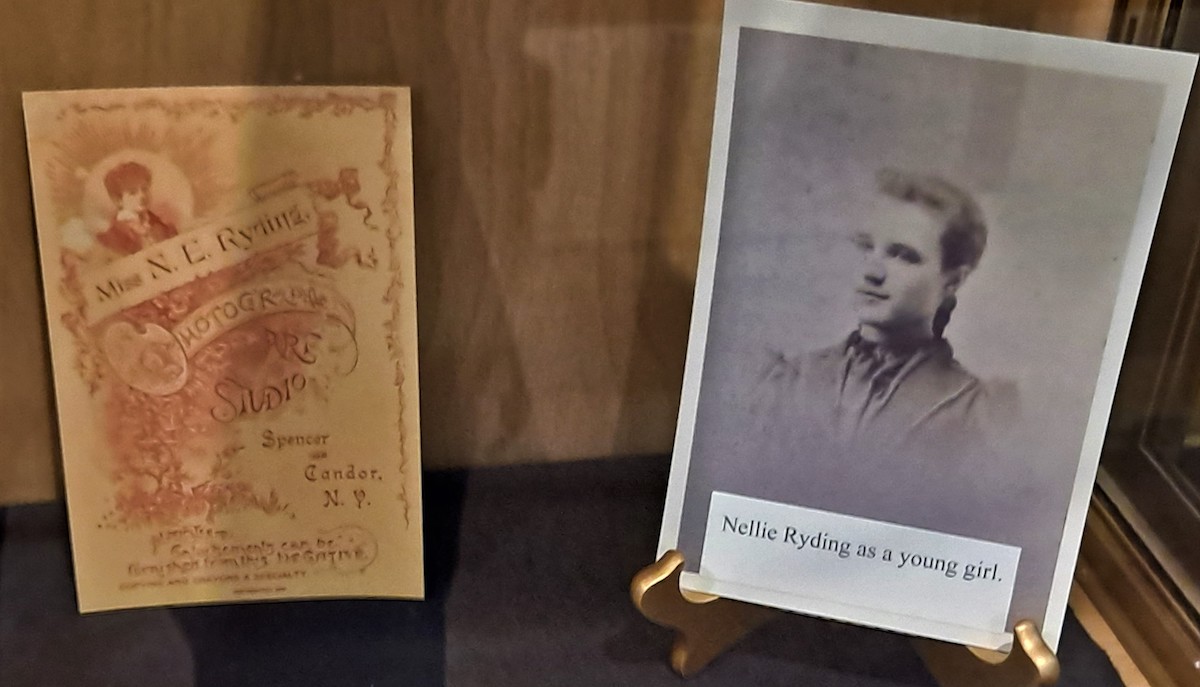 Miss N. E. Ryding,
PHOTOGRAPHIC
ART
STUDIO
Spencer
Candor,
N. Y.
Enlargements can be
furnished from this NEGATIVE
COPYING AND CRAYONS A SPECIALTY
Nellie Ryding as a young girl.